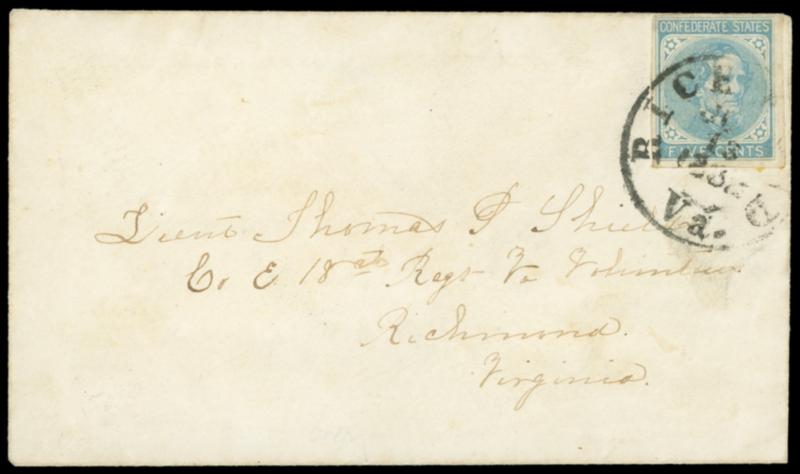 CONFEDERATE STATES
FIVE CENTS
RICH
Va.
Lieut Thomas P Shields
Co E 18th Regt Va Volunteers
Richmond
Virginia.